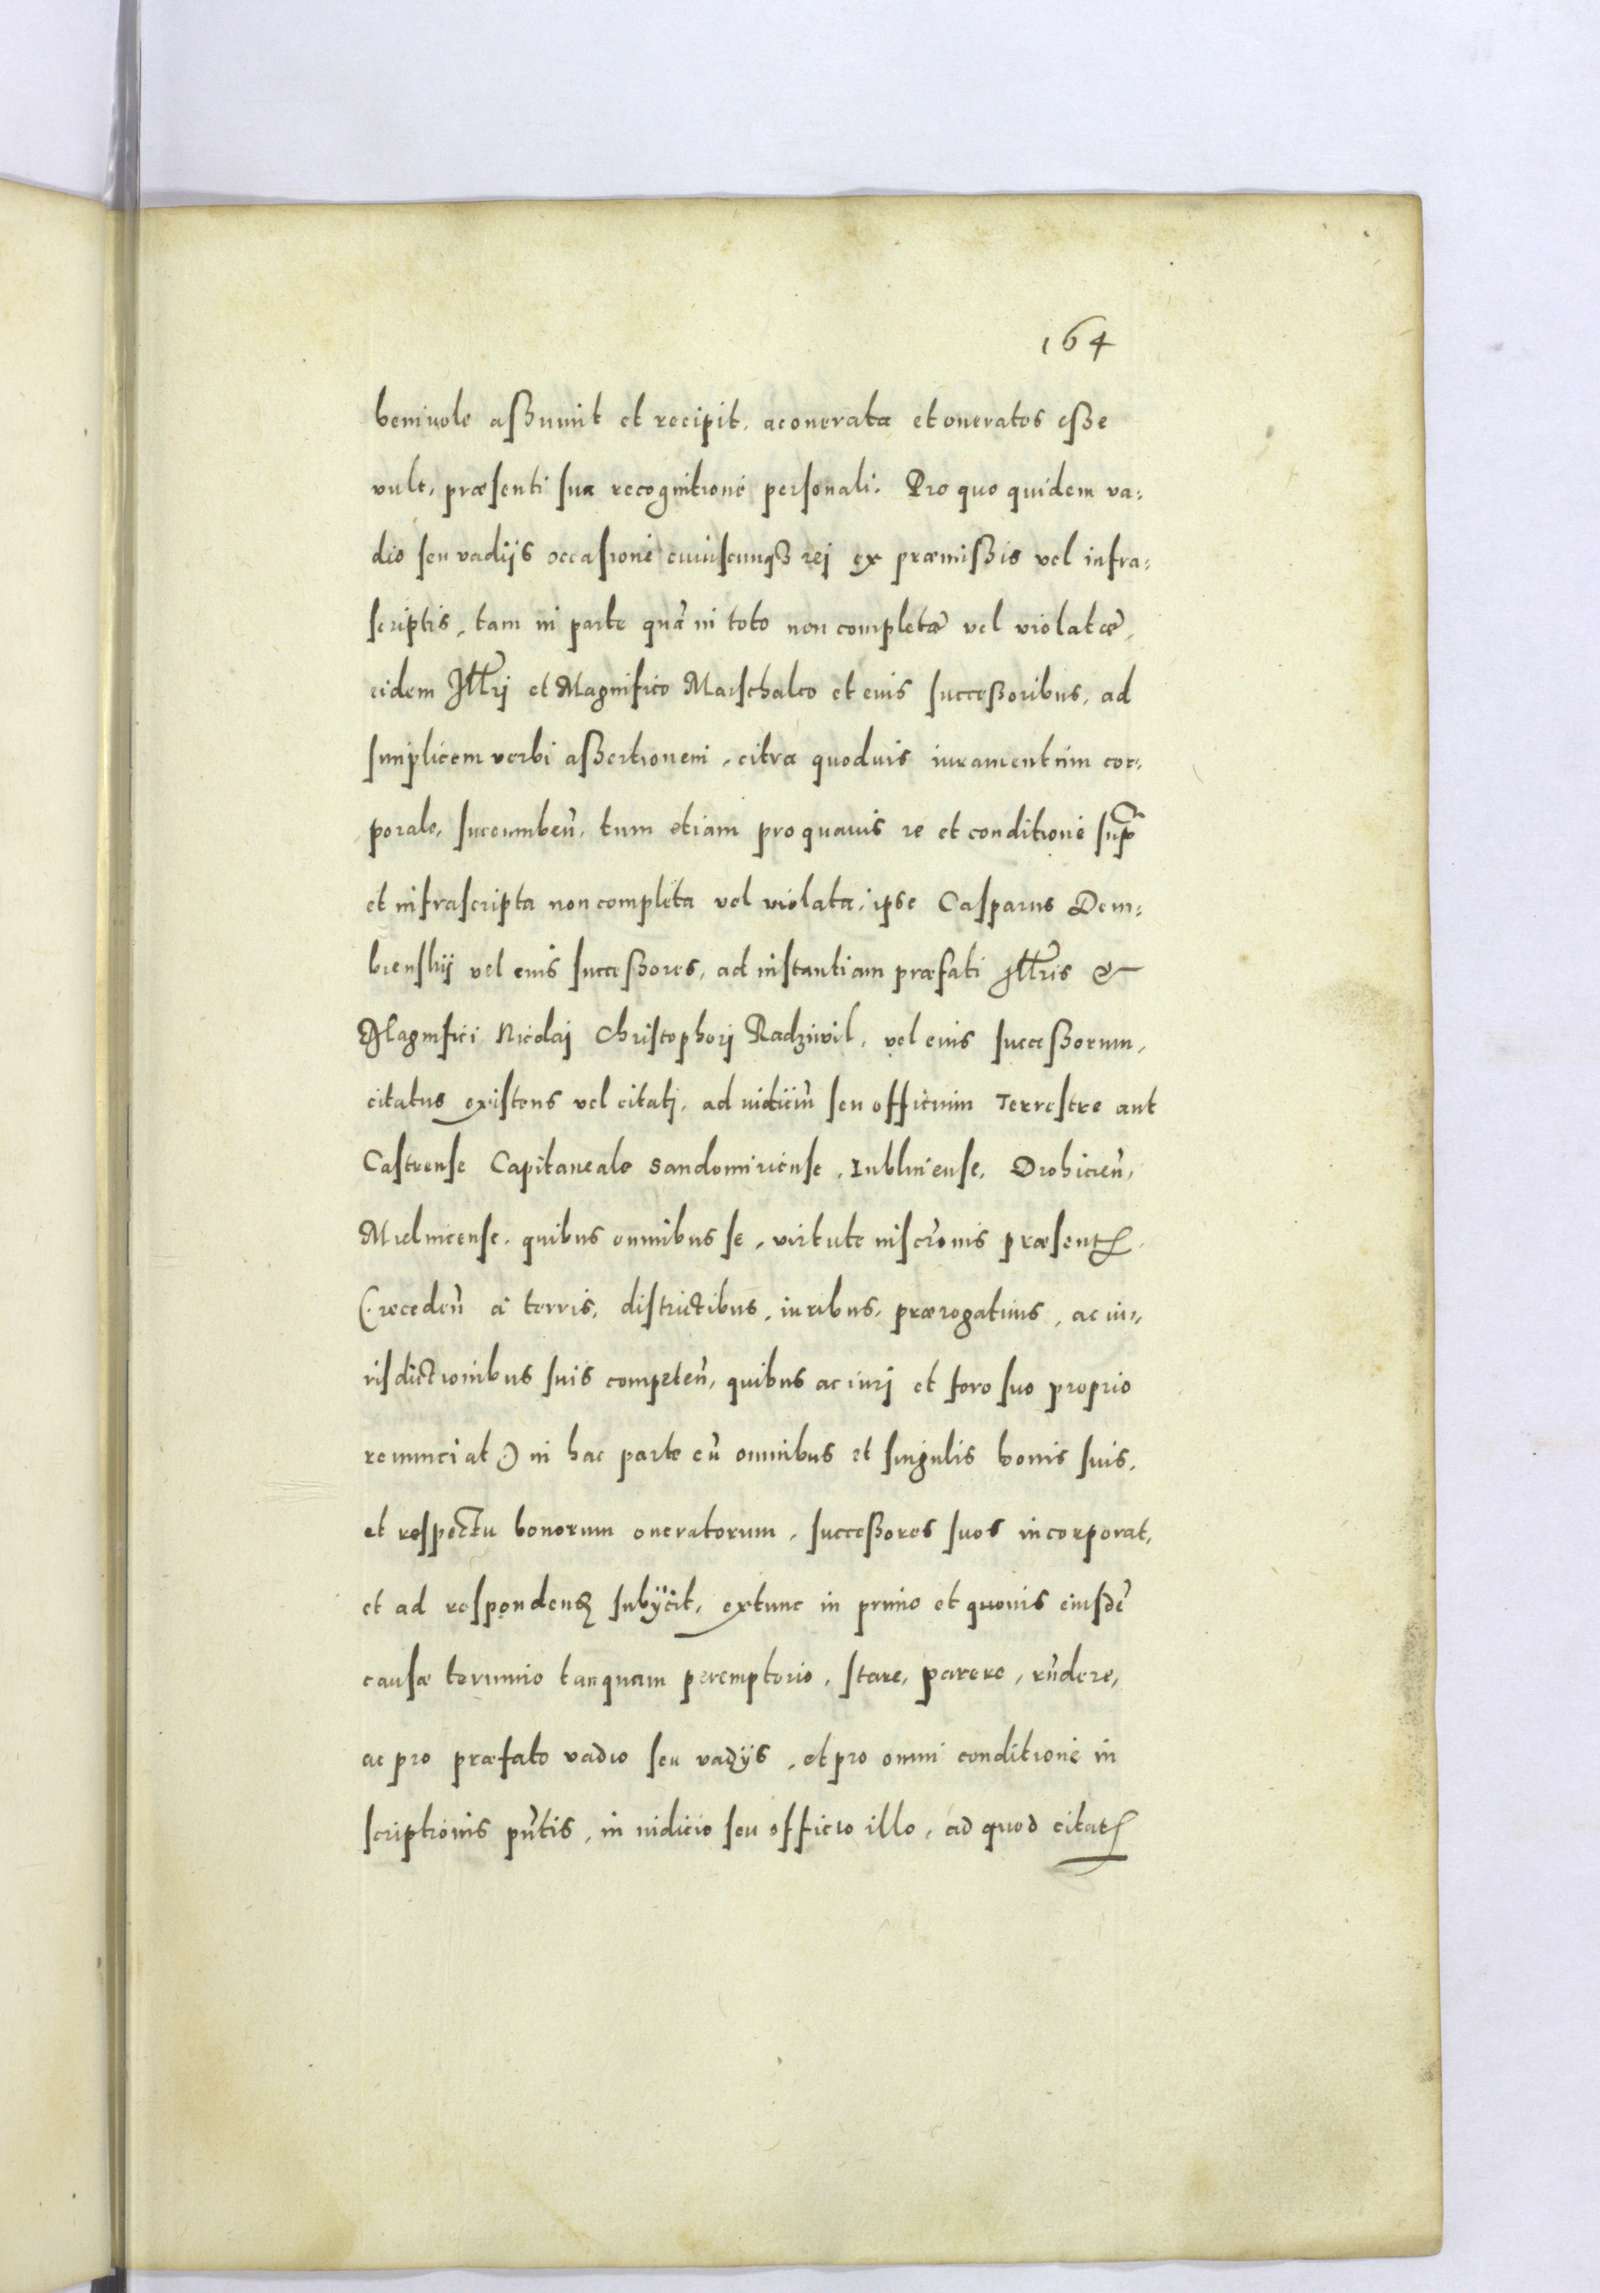 164
beniuole aßumit et recipit, ac onerata et oneratos eße
vult, præsenti sua recognitione personali. Pro quo quidem va:
dio seu vadijs occasione cuiuscunqȝ rej ex præmißis vel infra:
scriptis, tam in parte quā in toto non completæ vel violatæ,
eidem Illrj et Magnifico Marschalco et eius succeßoribus, ad
simplicem verbi aßertionem, citra quoduis iuramentum cor:
porale, succumbeñ, tum etiam pro quauis re et conditione sup
et infrascripta non completa vel violata, ipse Casparus Dem:
bienskij vel eius succeßores, ad instantiam præfati Illris &
Magnifici Nicolaj Christophorj Radziwil, vel eius succeßorum,
citatus existens vel citatj, ad iudiciū seu officium Terrestre aut
Castrense Capitaneale Sandomiriense, Lubliniense, Drohicieñ,
Mielnicense, quibus omnibus se, virtute inscrōnis præsentꝭ
(: recedeñ à terris, districtibus, iuribus, prærogatiuis, ac iu:
risdictionibus suis competeñ, quibus ac iurj et foro suo proprio
renunciat :) in hac parte cū omnibus et singulis bonis suis,
et respectu bonorum oneratorum, succeßores suos incorporat,
et ad respondenꝝ subÿcit, extunc in primo et quouis eiusdē
causæ termino tanquam peremptorio, stare, parere, rñdere,
ac pro præfato vadio seu vadÿs, et pro omni conditione in
scriptionis pñtis, in iudicio seu officio illo, ad quod citatꝭ